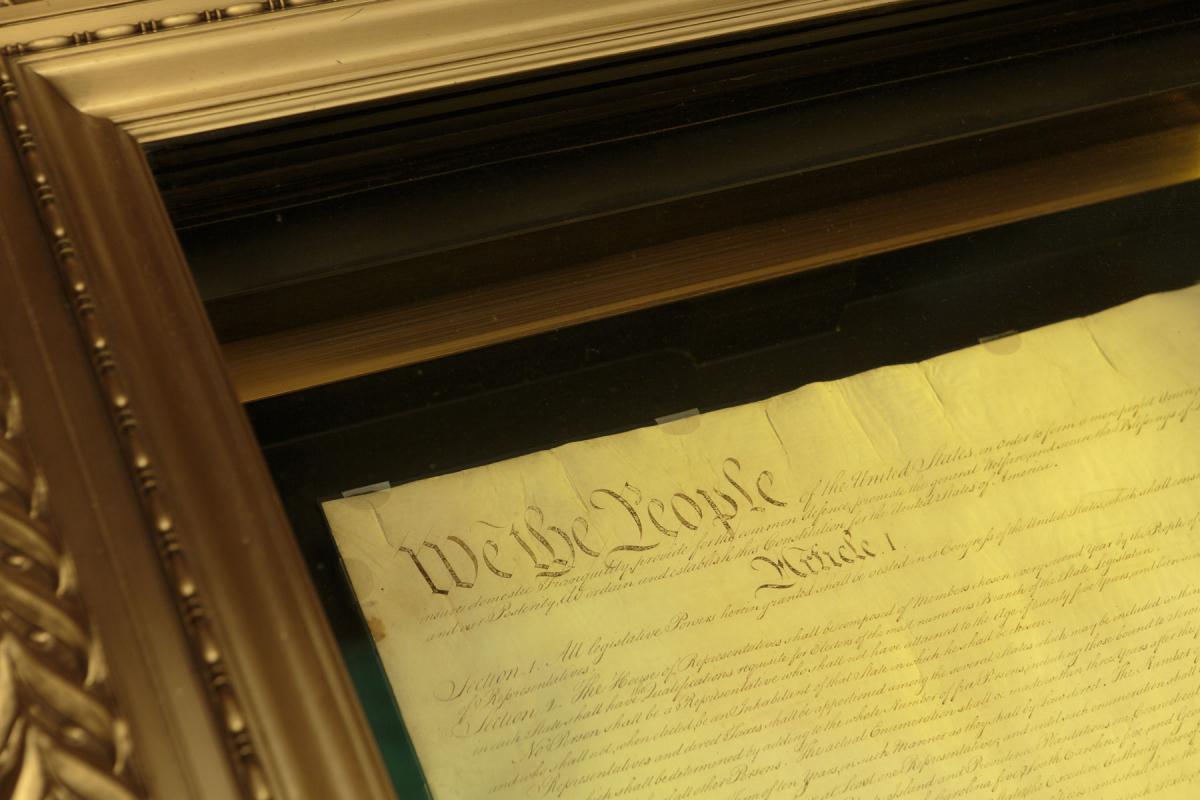 We the People of the United States, in Order to form a more perfect Union,
insure domestic Tranquility, provide for the common defence, promote the general Welfare, and secure the Blessings of
and our Posterity, do ordain and establish this Constitution for the United States of America.
Article I.
Section. 1. All legislative Powers herein granted shall be vested in a Congress of the United States, which shall
of Representatives.
Section. 2. The House of Representatives shall be composed of Members chosen every second Year by the People
in each State shall have Qualifications requisite for Electors of the most numerous Branch of the State Legislature.
No Person shall be a Representative who shall not have attained to the Age of twenty five Years, and been
and who shall not, when elected, be an Inhabitant of that State in which he shall be chosen.
Representatives and direct Taxes shall be apportioned among the several States which may be included within
shall be determined by adding to the whole Number of free Persons, including those bound to
all other Persons. The actual Enumeration shall be made within three Years after the
Term of ten Years, in such Manner as they shall by Law direct. The Number of
at Least one Representative; and until such enumeration shall
Island and Providence Plantations one, Connecticut
Carolina five, South Carolina five, and
Executive Authority